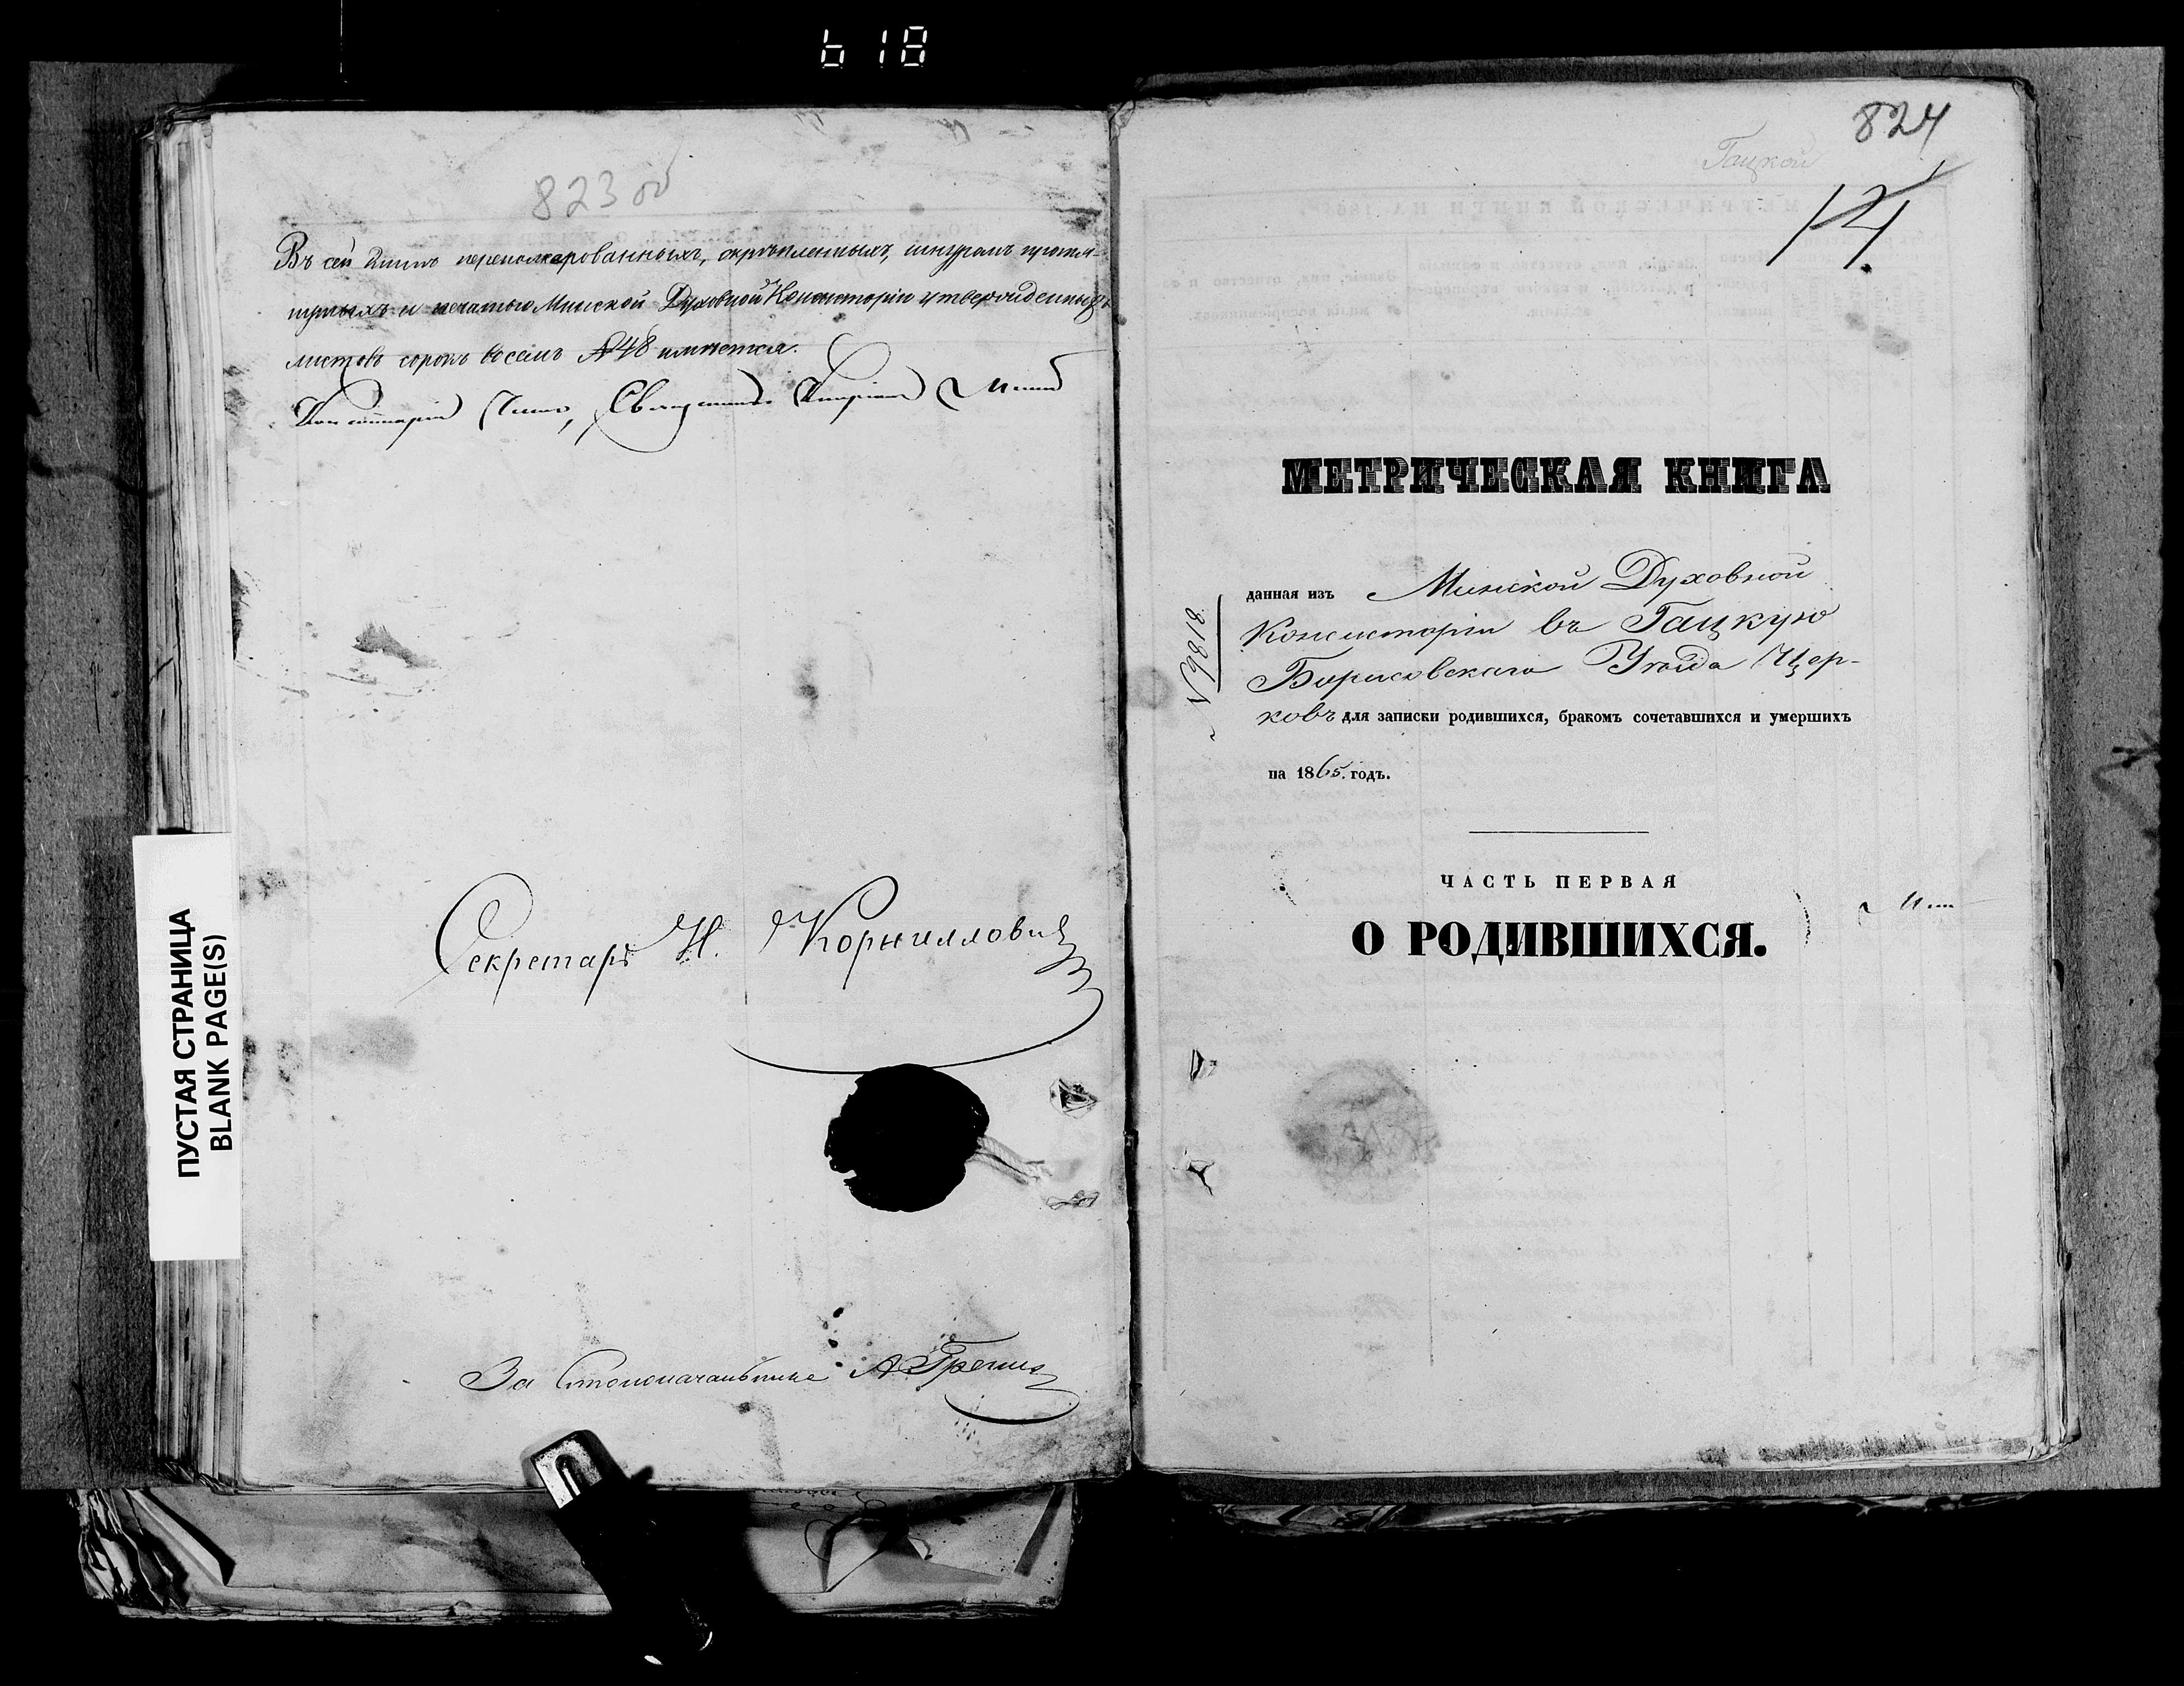 618
823 об
Въ сей книгѣ перенумерованныхъ, скрѣпленныхъ, шнуромъ протя-
нутыхъ и печатью Минской Духовной Консисторіи утвержденныхъ
листовъ сорокъ восемь №48 имѣется.
Консисторіи Членъ, Священникъ
Секретарь Н. Корниллович
За Столоначальника А
ПУСТАЯ СТРАНИЦА
BLANK PAGE(S)
824
Гацкой
14
МЕТРИЧЕСКАЯ КНИГА
данная изъ Минской Духовной
Консисторіи въ Гацкую
Борисовскаго Уѣзда Цер-
ковь для записки родившихся, бракомъ сочетавшихся и умершихъ
на 1865. годъ.
№ 9818
ЧАСТЬ ПЕРВАЯ
О РОДИВШИХСЯ.